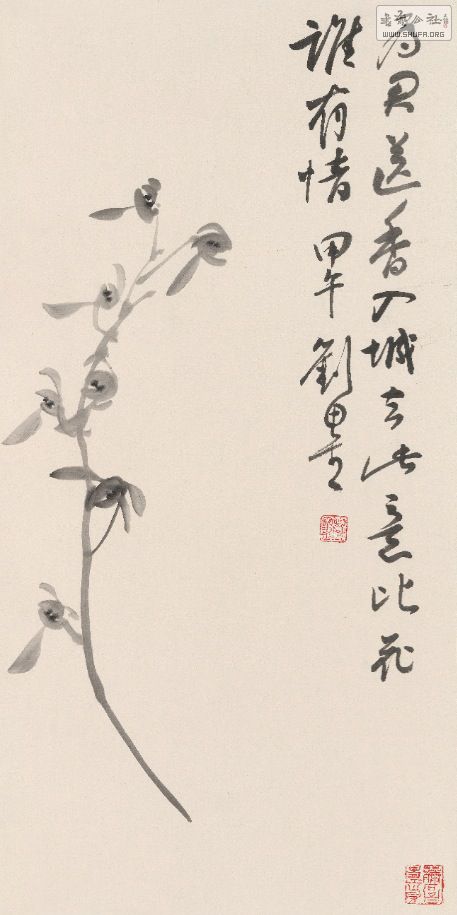 為君送香入城去此意比花
誰有情 甲午 劉
WWW.SHUFA.ORG